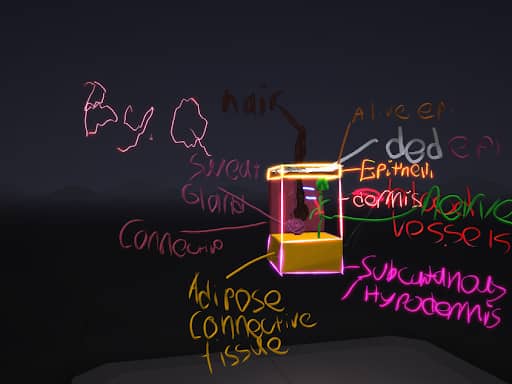 By. Q
hair
Alive ep.
ded epi
Sweat
Gland
Epitheli
dermis
nerve
vessels
Connective
Subcutanous
Hypodermis
Adipose
Connective
tissue